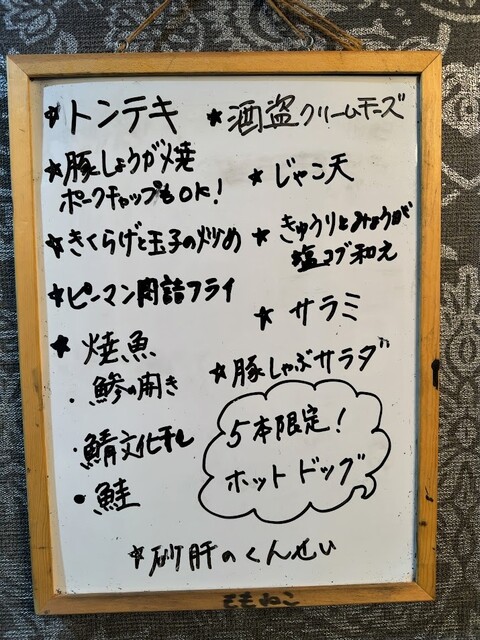 ★トンテキ
★豚しょうが焼
ポークチャップもOK!
★きくらげと玉子の炒め
★ピーマン肉詰フライ
★焼魚
・鯵の開き
・鯖文化干し
・鮭
★酒盗クリームチーズ
★じゃこ天
★きゅうりとみょうがの
塩コブ和え
★サラミ
★豚しゃぶサラダ
5本限定!
ホットドッグ
★砂肝のくんせい